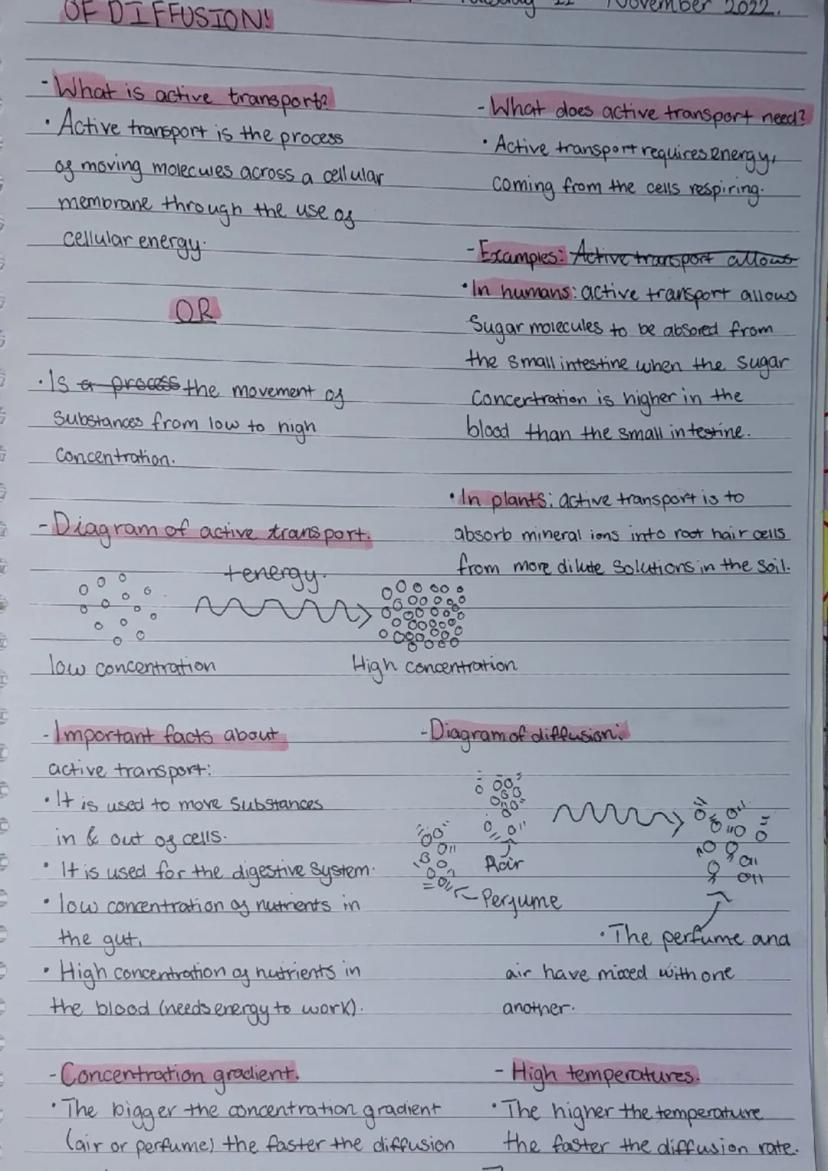 OF DIFFUSION!
November 2022.
- What is active transport?
• Active transport is the process
of moving molecules across a cellular
membrane through the use of
cellular energy.
OR
• Is a process the movement of
substances from low to high
concentration.
- Diagram of active transport.
+energy.
low concentration
High concentration
- What does active transport need?
• Active transport requires energy,
coming from the cells respiring.
- Examples: Active transport allows
• In humans: active transport allows
sugar molecules to be absored from
the small intestine when the sugar
concertration is higher in the
blood than the small intestine.
• In plants: active transport is to
absorb mineral ions into root hair cells
from more dilute solutions in the soil.
- Important facts about
active transport:
• It is used to move substances
in & out of cells.
• It is used for the digestive system.
• low concentration of nutrients in
the gut.
• High concentration of nutrients in
the blood (needs energy to work).
- Diagram of diffusion:
Air
Perfume
• The perfume and
air have mixed with one
another.
- Concentration gradient.
• The bigger the concentration gradient
(air or perfume) the faster the diffusion
- High temperatures.
• The higher the temperature
the faster the diffusion rate.